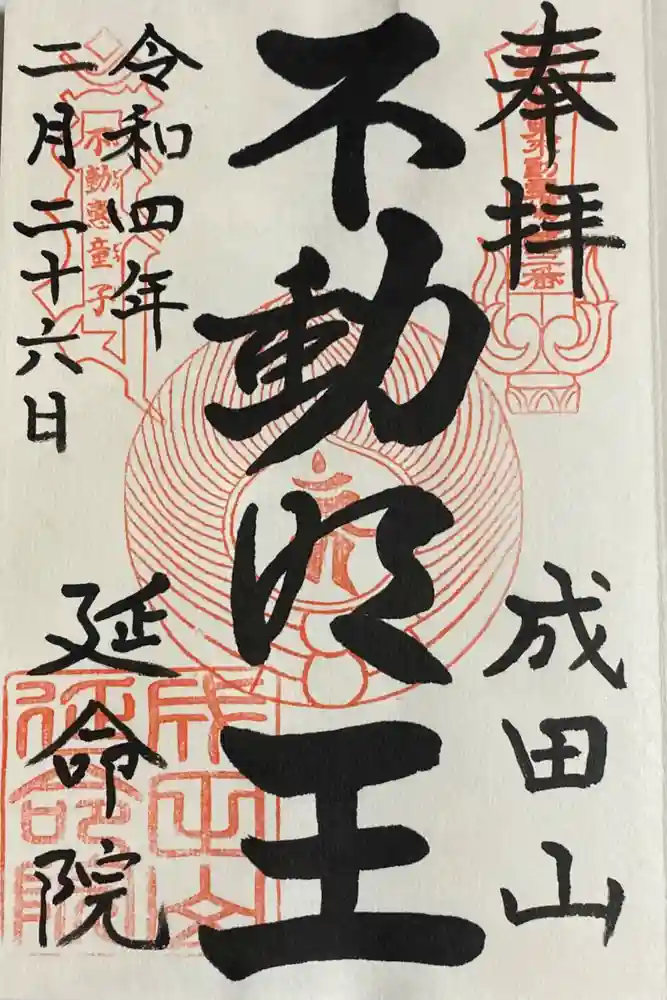 奉拝
成田山
不動明王
令和四年
二月二十六日
延命院
不動恵童子
成田山
延命院